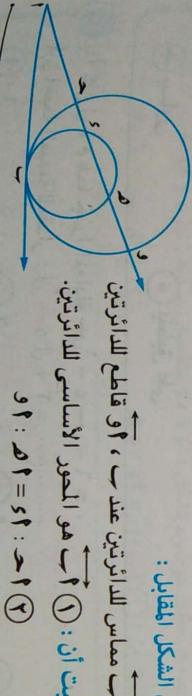 الشكل المقابل :
ب مماس للدائرتين عند ب ، م و قاطع للدائرتين
ت أن : ① م ب هو المحور الأساسى للدائرتين.
② م حـ : م ء = م هـ : م و
م
حـ
ء
هـ
و
ب